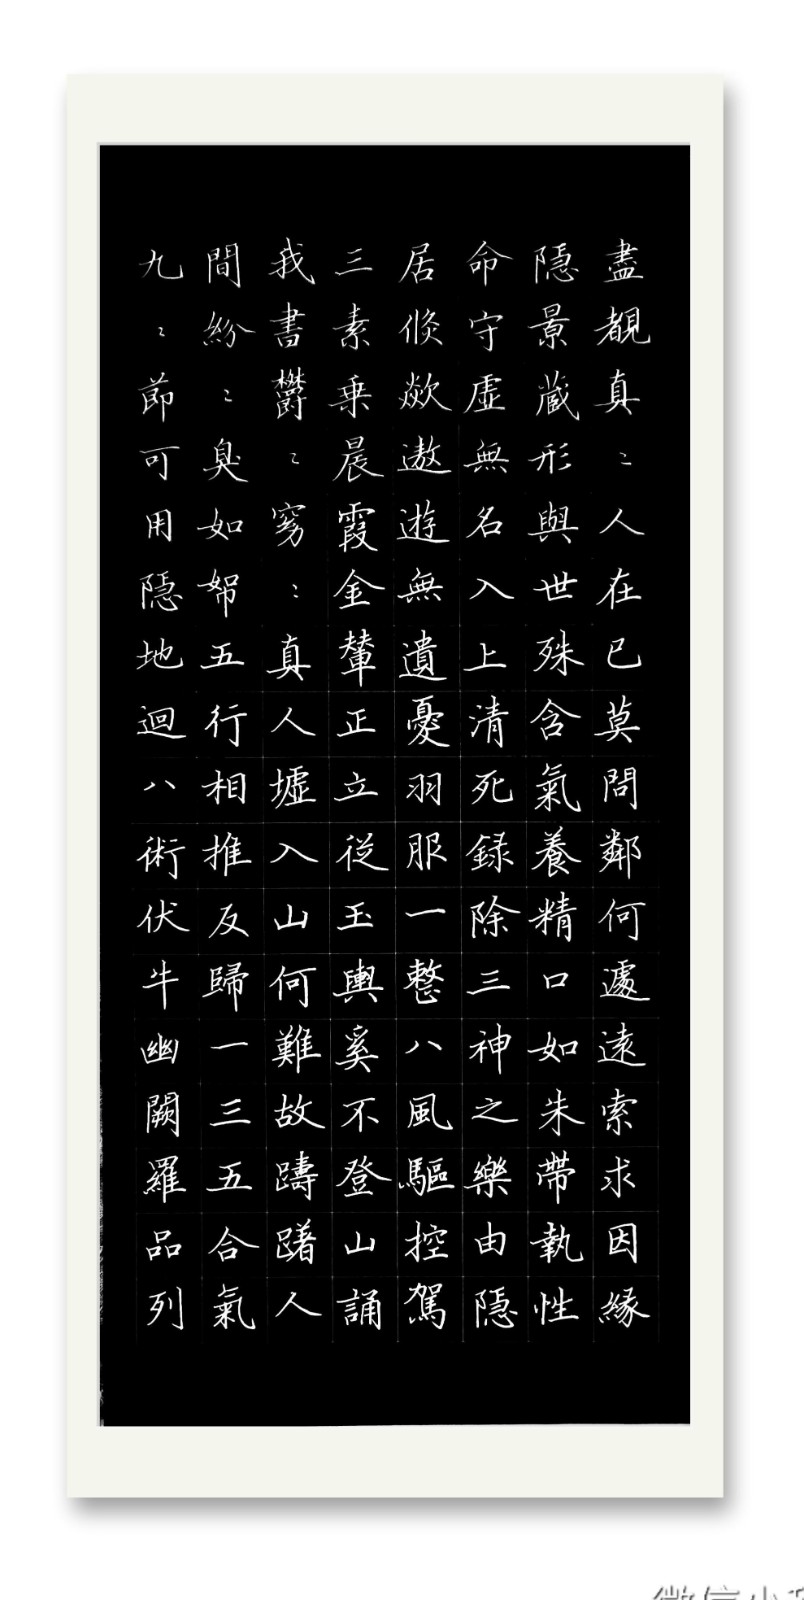 盡覩真〻人在己莫問鄰何處遠索求因緣
隱景藏形與世殊含氣養精口如朱帶執性
命守虛無名入上清死録除三神之樂由隱
居倏欻遨遊無遺憂羽服一整八風驅控駕
三素乗晨霞金輦正立從玉輿奚不登山誦
我書欝〻窈〻真人墟入山何難故躊躇人
間紛〻臭如帤五行相推反歸一三五合氣
九〻節可用隱地迴八術伏牛幽闕羅品列